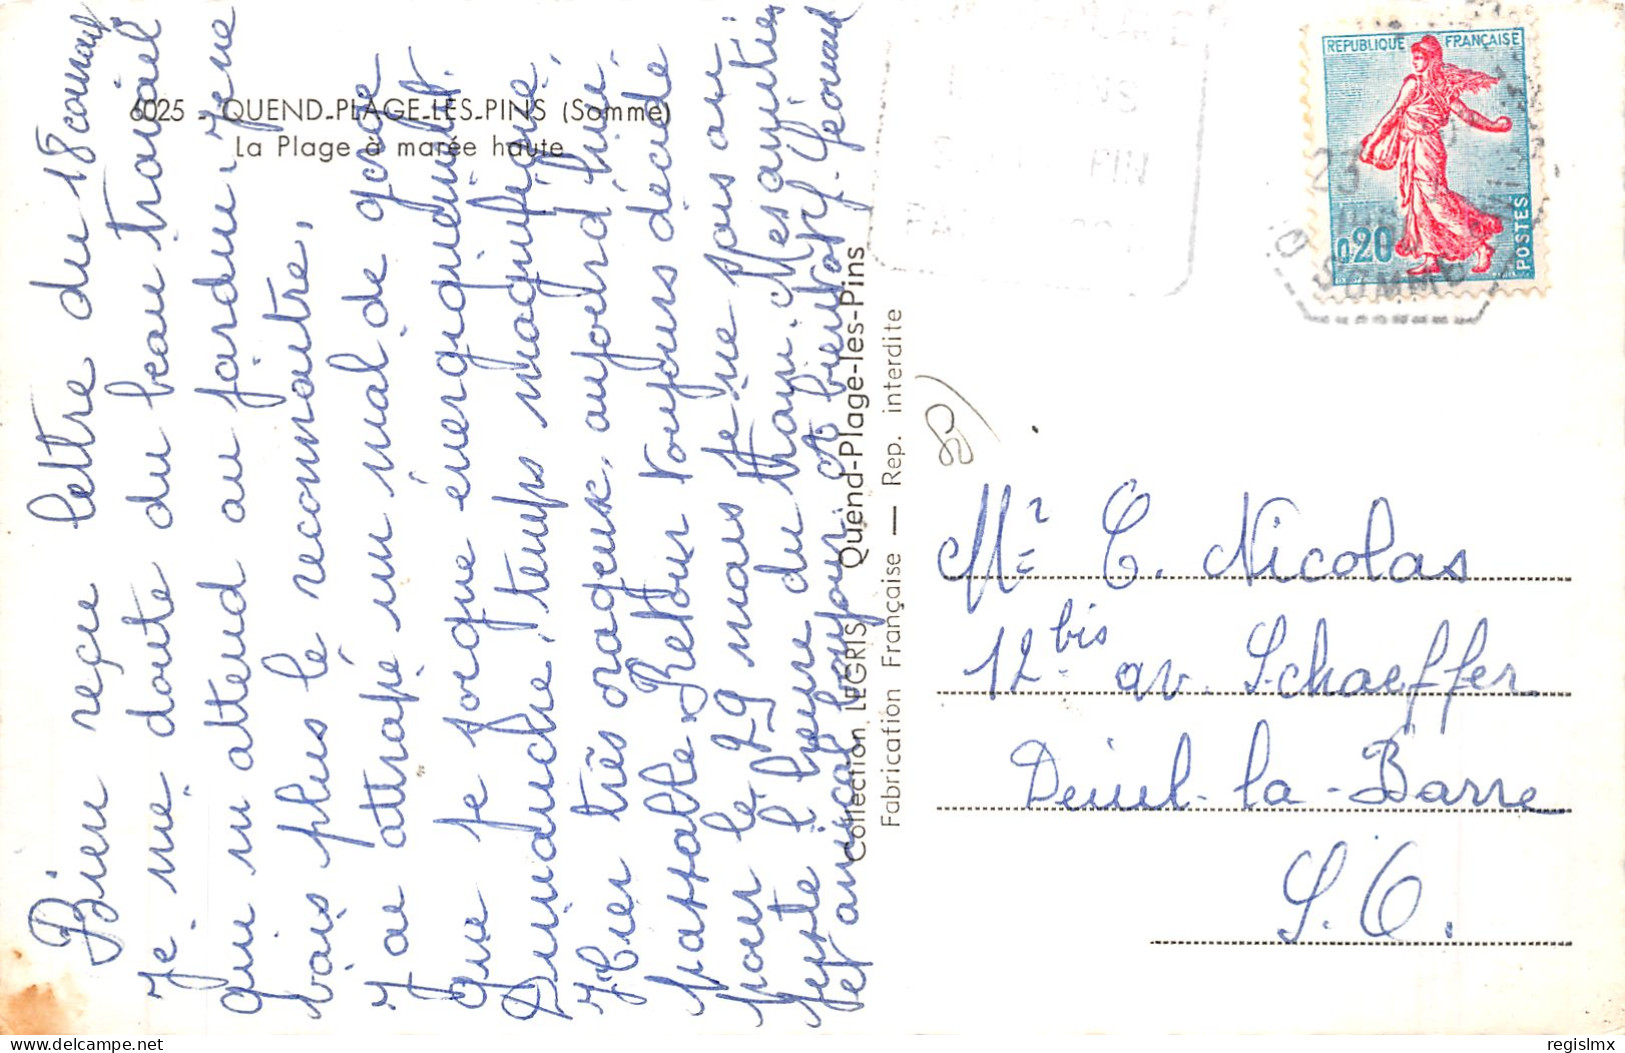 6025 - QUEND-PLAGE-LES-PINS (Somme)
La Plage à marée haute
Bien reçu lettre du 18 courant
Je me doute du beau travail
qui m attend au jardin. Je ne
vais plus le reconnaitre,
J ai attrapé un mal de gorge
que je soigne énergiquement.
Dimanche, temps magnifique,
Hier très orageux, aujourd'hui
passable. Retour toujours décidé
pour le 2-9 mais je ne sais au
juste l'heure du train. Mes amitiés
et amical bonjour et bientôt
Collection LEGRIS Quend-Plage-les-Pins
Fabrication Française — Rep. interdite
REPUBLIQUE FRANÇAISE
0,20
POSTES
23
SOMME
Mr C. Nicolas
12 bis av. Schaeffer
Deuil-la-Barre
S.O.
regislmx
delcampe.net